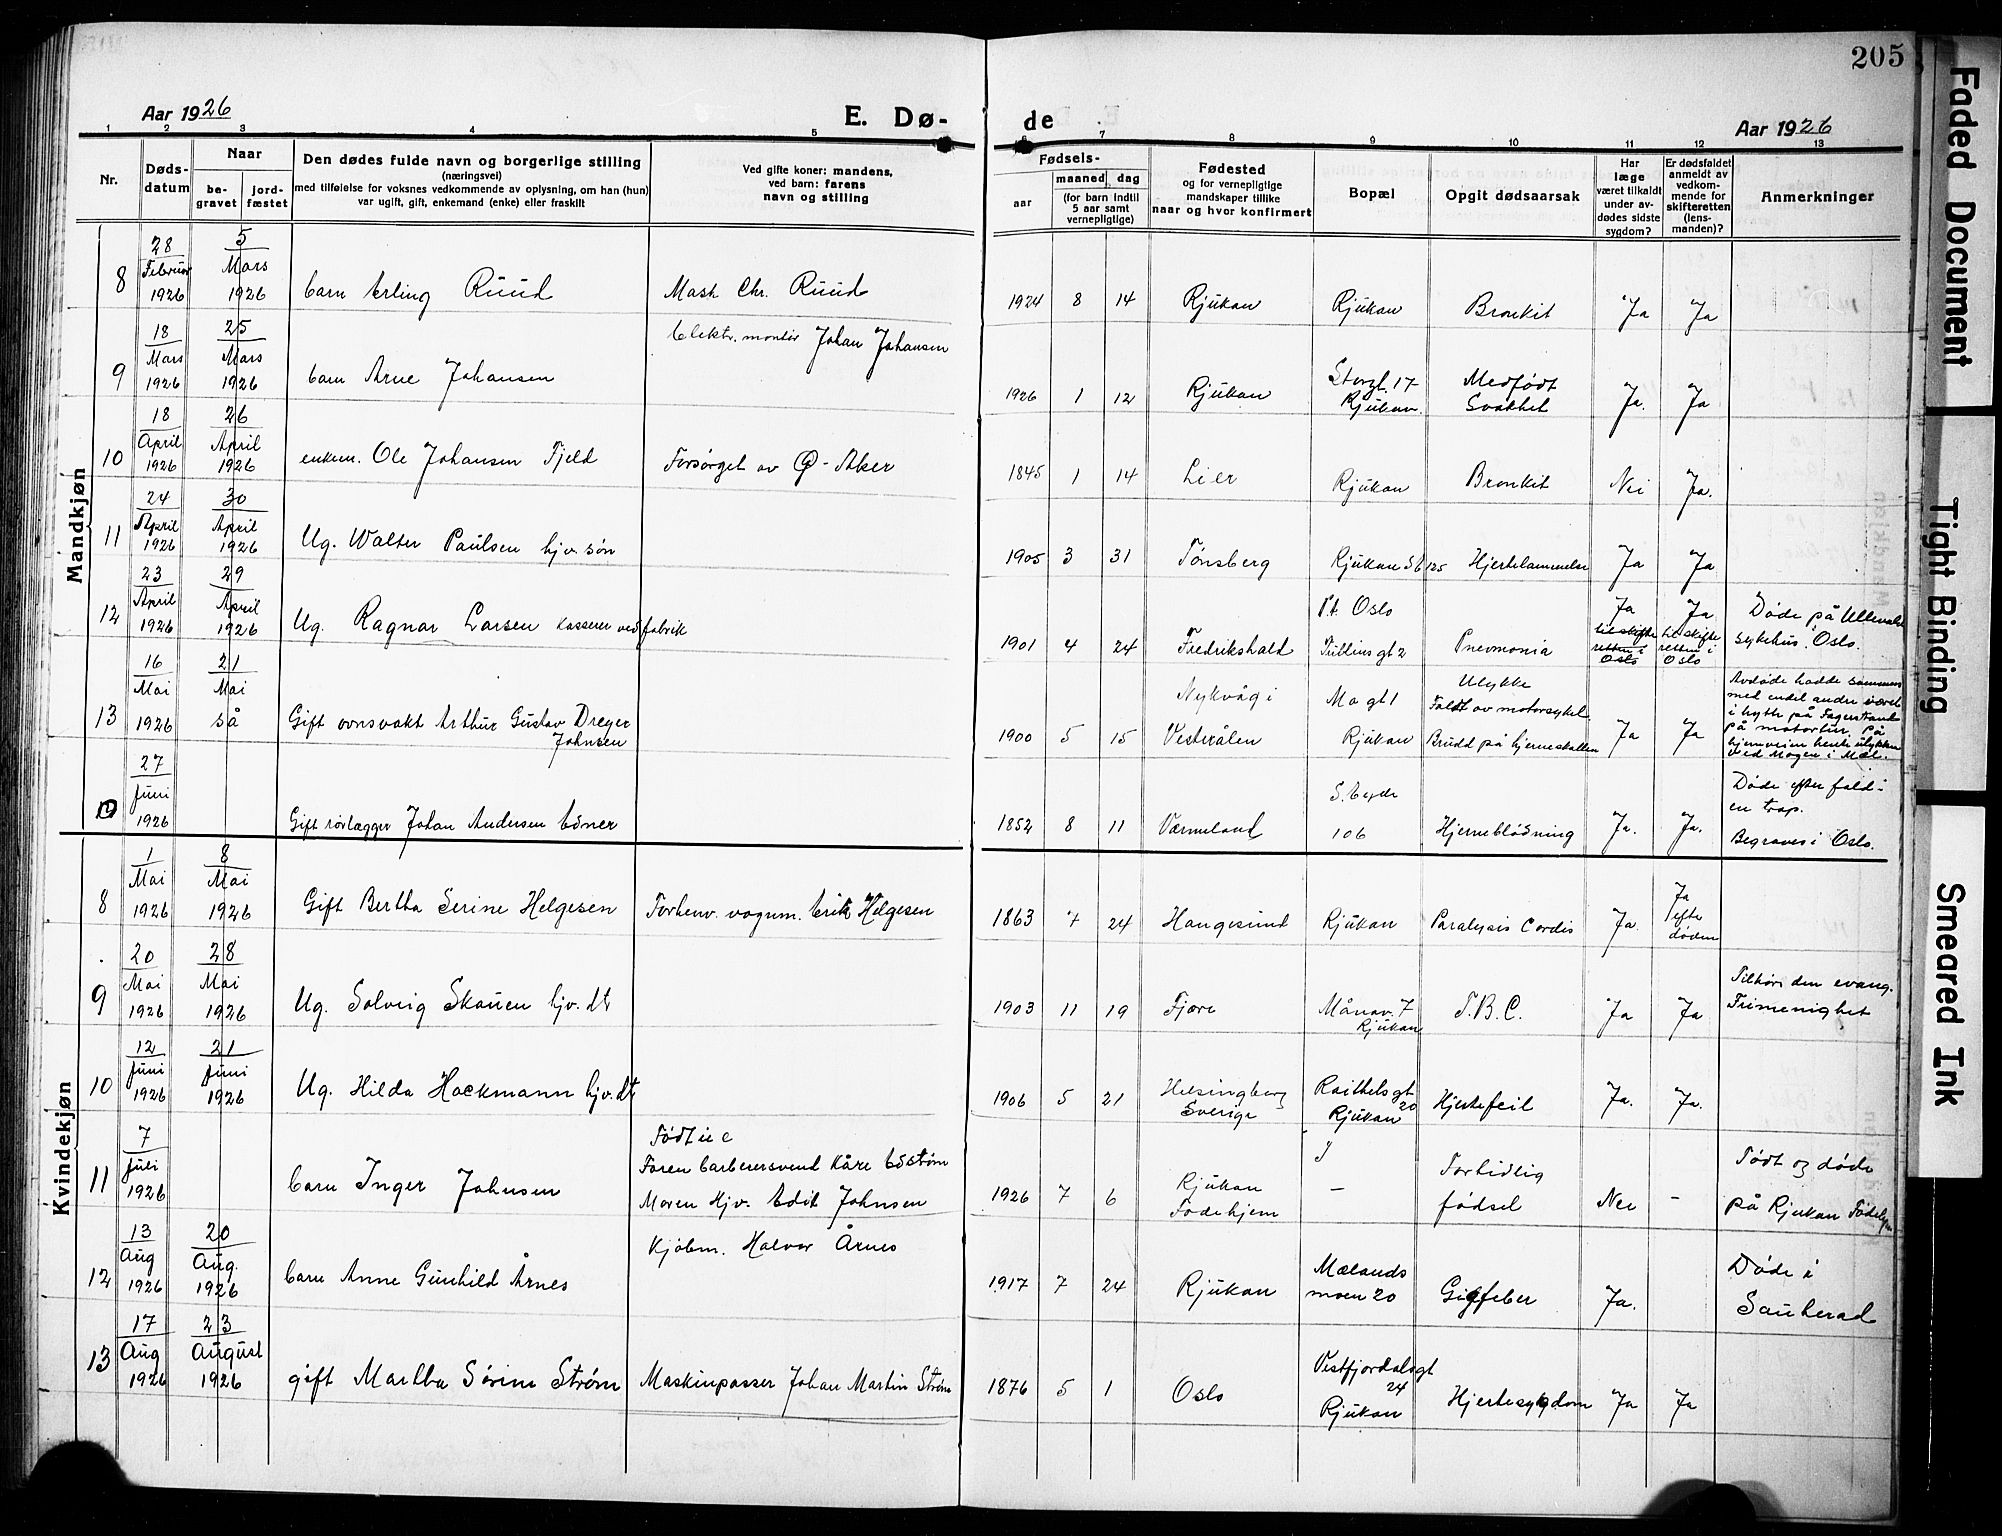 205
Aar 1926
E. Dø-
de
Aar 1926
1 2 3 4 5 6 7 8 9 10 11 12 13
Nr.
Døds-
datum
Naar
be-
gravet
jord-
fæstet
Den dødes fulde navn og borgerlige stilling
(næringsvei)
med tilføielse for voksnes vedkommende av oplysning, om han (hun)
var ugift, gift, enkemand (enke) eller fraskilt
Ved gifte koner: mandens,
ved barn: farens
navn og stilling
Fødsels-
aar
maaned dag
(for barn indtil
5 aar samt
vernepligtige)
Fødested
og for vernepligtige
mandskaper tillike
naar og hvor konfirmert
Bopæl
Opgit dødsaarsak
Har
læge
været tilkaldt
under av-
dødes sidste
sygdom?
Er dødsfaldet
anmeldt av
vedkom-
mende for
skifteretten
(lens-
manden)?
Anmerkninger
Mandkjøn
8 28 Februar 1926 5 Mars 1926 barn Erling Ruud Mask Chr. Ruud 1924 8 14 Rjukan Rjukan Bronkit Ja Ja
9 18 Mars 1926 25 Mars 1926 barn Arne Johansen Elektr. montør Johan Johansen 1926 1 12 Rjukan Storgt. 17 Rjukan Medfødt Svakhet Ja. Ja
10 18 April 1926 26 April 1926 enkem. Ole Johansen Fjeld Forsørget av Aker 1845 1 14 Lier Rjukan Bronkit Nei Ja.
11 24 April 1926 30 April 1926 Ug. Walter Paulsen hjv. søn 1905 3 31 Tønsberg Rjukan S b 125 Hjertelammelse Ja Ja
12 23 April 1926 29 April 1926 Ug. Ragnar Larsen kasserer ved fabrik 1901 4 24 Fredrikshald P.t. Oslo gt 2 Pneumonia Ja til skifte retten i Oslo Ja til skifte retten i Oslo Døde på Ullevaal sykehus. Oslo.
13 16 Mai 1926 21 Mai så Gift ovnsvakt Arthur Gustav Dreyer Johnsen 1900 5 15 Nykvåg i Vesterålen Ma gt 1 Rjukan Ulykke Faldt av motorsykel Brudd på hjerneskallen Ja Ja Avdøde hadde sammen med endel andre været i hytte på Fagerstrand på motortur. På hjemveien hente ulykken ved Mogen i Mæl.
27 Juni 1926 Gift rørlægger Johan Andersen Esner 1852 8 11 Värmeland S. byde 106 Hjerneblødning Ja. Ja. Døde efter fald i en trap. Begraves i Oslo.
Kvindekjøn
8 1 Mai 1926 8 Mai 1926 Gift Bertha Serine Helgesen Forhenv. vognm. Erik Helgesen 1863 7 24 Haugesund Rjukan Paralysis Cordis Ja. Ja efter døden
9 20 Mai 1926 28 Mai 1926 Ug. Solveig Skauen hjv. dt 1903 11 19 Fjære Månav. 7 Rjukan T.B.C. Ja Ja. Tilhøri den evang. Frimenighet
10 12 Juni 1926 21 Juni 1926 Ug. Hilda Hackmann hjv. dt 1906 5 21 Helsingberg Sverige Rosthelsgt 20 Rjukan Hjertefeil Ja. Ja.
11 7 Juli 1926 barn Inger Johnsen Født u e Faren barberersvend Kåre Edstrøm Moren Hjv. Edit Johnsen 1926 7 6 Rjukan Fødehjem — Fortidlig fødsel Nei — Født og døde på Rjukan Fødehjem
12 13 Aug 1926 20 Aug. 1926 barn Anne Gunhild Årnes Kjøbm. Halvor Årnes 1917 7 24 Rjukan Mælandsmoen 20 Gigtfeber Ja. Døde i Sauherad
13 17 Aug 1926 23 August 1926 gift Martha Sørine Strøm Maskinpasser Johan Martin Strøm 1876 5 1 Oslo Vestfjordalsgt 24 Rjukan Hjertesygdom Ja Ja
Faded Document
Tight Binding
Smeared Ink